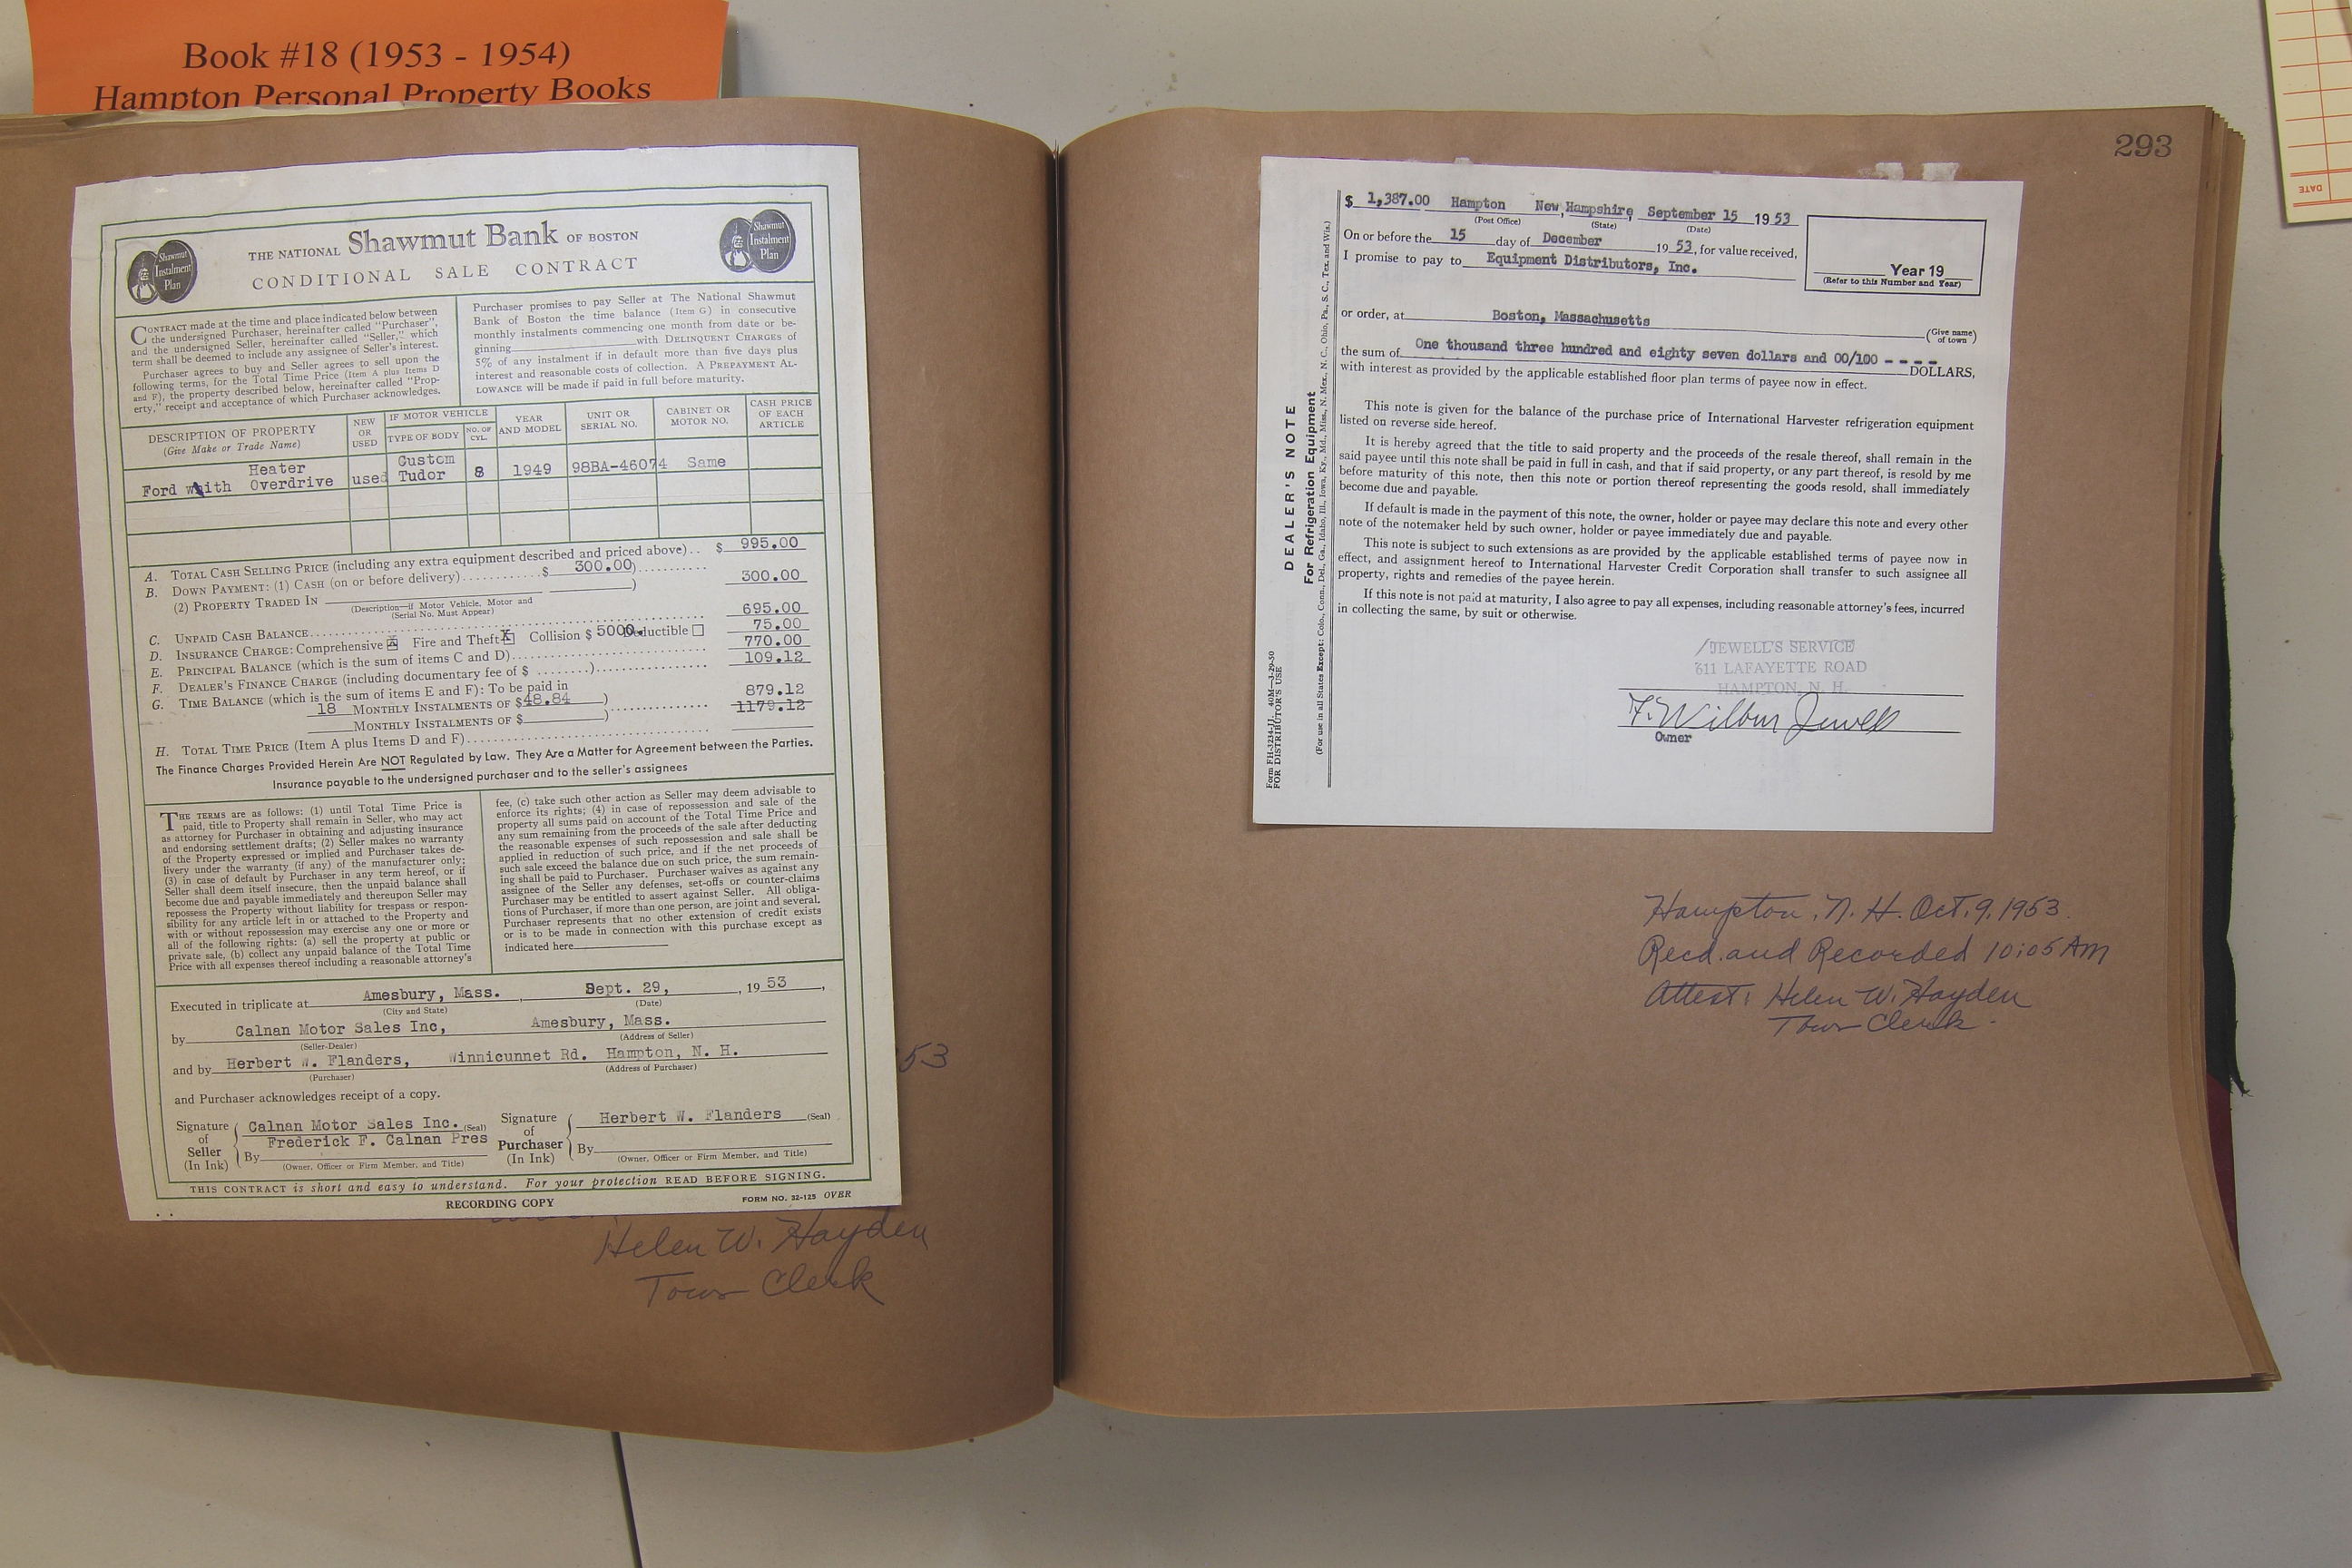 Book #18 (1953 - 1954)
Hampton Personal Property Books
Shawmut
Instalment
Plan
THE NATIONAL Shawmut Bank OF BOSTON
CONDITIONAL SALE CONTRACT
Shawmut
Instalment
Plan
CONTRACT made at the time and place indicated below between
the undersigned Purchaser, hereinafter called "Purchaser",
and the undersigned Seller, hereinafter called "Seller," which
term shall be deemed to include any assignee of Seller's interest.
Purchaser agrees to buy and Seller agrees to sell upon the
following terms, for the Total Time Price (Item A plus Items D
and F), the property described below, hereinafter called "Prop-
erty," receipt and acceptance of which Purchaser acknowledges.
Purchaser promises to pay Seller at The National Shawmut
Bank of Boston the time balance (Item G) in consecutive
monthly instalments commencing one month from date or be-
ginning with DELINQUENT CHARGES of
5% of any instalment if in default more than five days plus
interest and reasonable costs of collection. A PREPAYMENT AL-
LOWANCE will be made if paid in full before maturity.
DESCRIPTION OF PROPERTY
(Give Make or Trade Name)
NEW
OR
USED
IF MOTOR VEHICLE
TYPE OF BODY
NO. OF
CYL.
YEAR
AND MODEL
UNIT OR
SERIAL NO.
CABINET OR
MOTOR NO.
CASH PRICE
OF EACH
ARTICLE
Heater Custom
Ford with Overdrive used Tudor 8 1949 98BA-46074 Same
A. TOTAL CASH SELLING PRICE (including any extra equipment described and priced above).. $ 995.00
B. DOWN PAYMENT: (1) CASH (on or before delivery)...........$ 300.00)..........
(2) PROPERTY TRADED IN ) 300.00
(Description—if Motor Vehicle, Motor and
Serial No. Must Appear)
C. UNPAID CASH BALANCE.......... 695.00
D. INSURANCE CHARGE: Comprehensive ☒ Fire and Theft ☒ Collision $ 5000. Deductible ☐ 75.00
E. PRINCIPAL BALANCE (which is the sum of items C and D).......... 770.00
F. DEALER'S FINANCE CHARGE (including documentary fee of $ ........).......... 109.12
G. TIME BALANCE (which is the sum of items E and F): To be paid in
18 MONTHLY INSTALMENTS OF $48.84 ) 879.12
MONTHLY INSTALMENTS OF $ ).......... 1179.12
H. TOTAL TIME PRICE (Item A plus Items D and F)..........
The Finance Charges Provided Herein Are NOT Regulated by Law. They Are a Matter for Agreement between the Parties.
Insurance payable to the undersigned purchaser and to the seller's assignees
THE TERMS are as follows: (1) until Total Time Price is
paid, title to Property shall remain in Seller, who may act
as attorney for Purchaser in obtaining and adjusting insurance
and endorsing settlement drafts; (2) Seller makes no warranty
of the Property expressed or implied and Purchaser takes de-
livery under the warranty (if any) of the manufacturer only;
(3) in case of default by Purchaser in any term hereof, or if
Seller shall deem itself insecure, then the unpaid balance shall
become due and payable immediately and thereupon Seller may
repossess the Property without liability for trespass or respon-
sibility for any article left in or attached to the Property and
with or without repossession may exercise any one or more or
all of the following rights: (a) sell the property at public or
private sale, (b) collect any unpaid balance of the Total Time
Price with all expenses thereof including a reasonable attorney's
fee, (c) take such other action as Seller may deem advisable to
enforce its rights; (4) in case of repossession and sale of the
property all sums paid on account of the Total Time Price and
any sum remaining from the proceeds of the sale after deducting
the reasonable expenses of such repossession and sale shall be
applied in reduction of such price, and if the net proceeds of
such sale exceed the balance due on such price, the sum remain-
ing shall be paid to Purchaser. Purchaser waives as against any
assignee of the Seller any defenses, set-offs or counter-claims
Purchaser may be entitled to assert against Seller. All obliga-
tions of Purchaser, if more than one person, are joint and several.
Purchaser represents that no other extension of credit exists
or is to be made in connection with this purchase except as
indicated here
Executed in triplicate at Amesbury, Mass. , Sept. 29, , 19 53 ,
(City and State) (Date)
by Calnan Motor Sales Inc, Amesbury, Mass.
(Seller-Dealer) (Address of Seller)
and by Herbert W. Flanders, Winnicunnet Rd. Hampton, N. H.
(Purchaser) (Address of Purchaser)
and Purchaser acknowledges receipt of a copy.
Signature
of
Seller
(In Ink)
Calnan Motor Sales Inc. (Seal)
Frederick F. Calnan Pres
By
(Owner, Officer or Firm Member, and Title)
Signature
of
Purchaser
(In Ink)
Herbert W. Flanders (Seal)
By
(Owner, Officer or Firm Member, and Title)
THIS CONTRACT is short and easy to understand. For your protection READ BEFORE SIGNING.
RECORDING COPY
FORM NO. 32-125 OVER
53
Helen W. Hayden
Town Clerk
293
DEALER'S NOTE
For Refrigeration Equipment
(For use in all States Except: Colo., Conn., Del., Ga., Idaho, Ill., Iowa, Ky., Md., Miss., N. Mex., N. C., Ohio, Pa., S. C., Tex. and Wis.)
Form FH-3234-J1. 40M—3-29-50
FOR DISTRIBUTOR'S USE
$ 1,387.00 Hampton New Hampshire, September 15 19 53
(Post Office) (State) (Date)
On or before the 15 day of December 19 53, for value received,
I promise to pay to Equipment Distributors, Inc.
Year 19
(Refer to this Number and Year)
or order, at Boston, Massachusetts (Give name of town)
the sum of One thousand three hundred and eighty seven dollars and 00/100 - - - - DOLLARS,
with interest as provided by the applicable established floor plan terms of payee now in effect.
This note is given for the balance of the purchase price of International Harvester refrigeration equipment
listed on reverse side hereof.
It is hereby agreed that the title to said property and the proceeds of the resale thereof, shall remain in the
said payee until this note shall be paid in full in cash, and that if said property, or any part thereof, is resold by me
before maturity of this note, then this note or portion thereof representing the goods resold, shall immediately
become due and payable.
If default is made in the payment of this note, the owner, holder or payee may declare this note and every other
note of the notemaker held by such owner, holder or payee immediately due and payable.
This note is subject to such extensions as are provided by the applicable established terms of payee now in
effect, and assignment hereof to International Harvester Credit Corporation shall transfer to such assignee all
property, rights and remedies of the payee herein.
If this note is not paid at maturity, I also agree to pay all expenses, including reasonable attorney's fees, incurred
in collecting the same, by suit or otherwise.
JEWELL'S SERVICE
611 LAFAYETTE ROAD
HAMPTON, N. H.
F. Wilbur Jewell
Owner
Hampton, N. H. Oct. 9, 1953.
Recd. and Recorded 10:05 AM
Attest: Helen W. Hayden
Town Clerk.
DATE